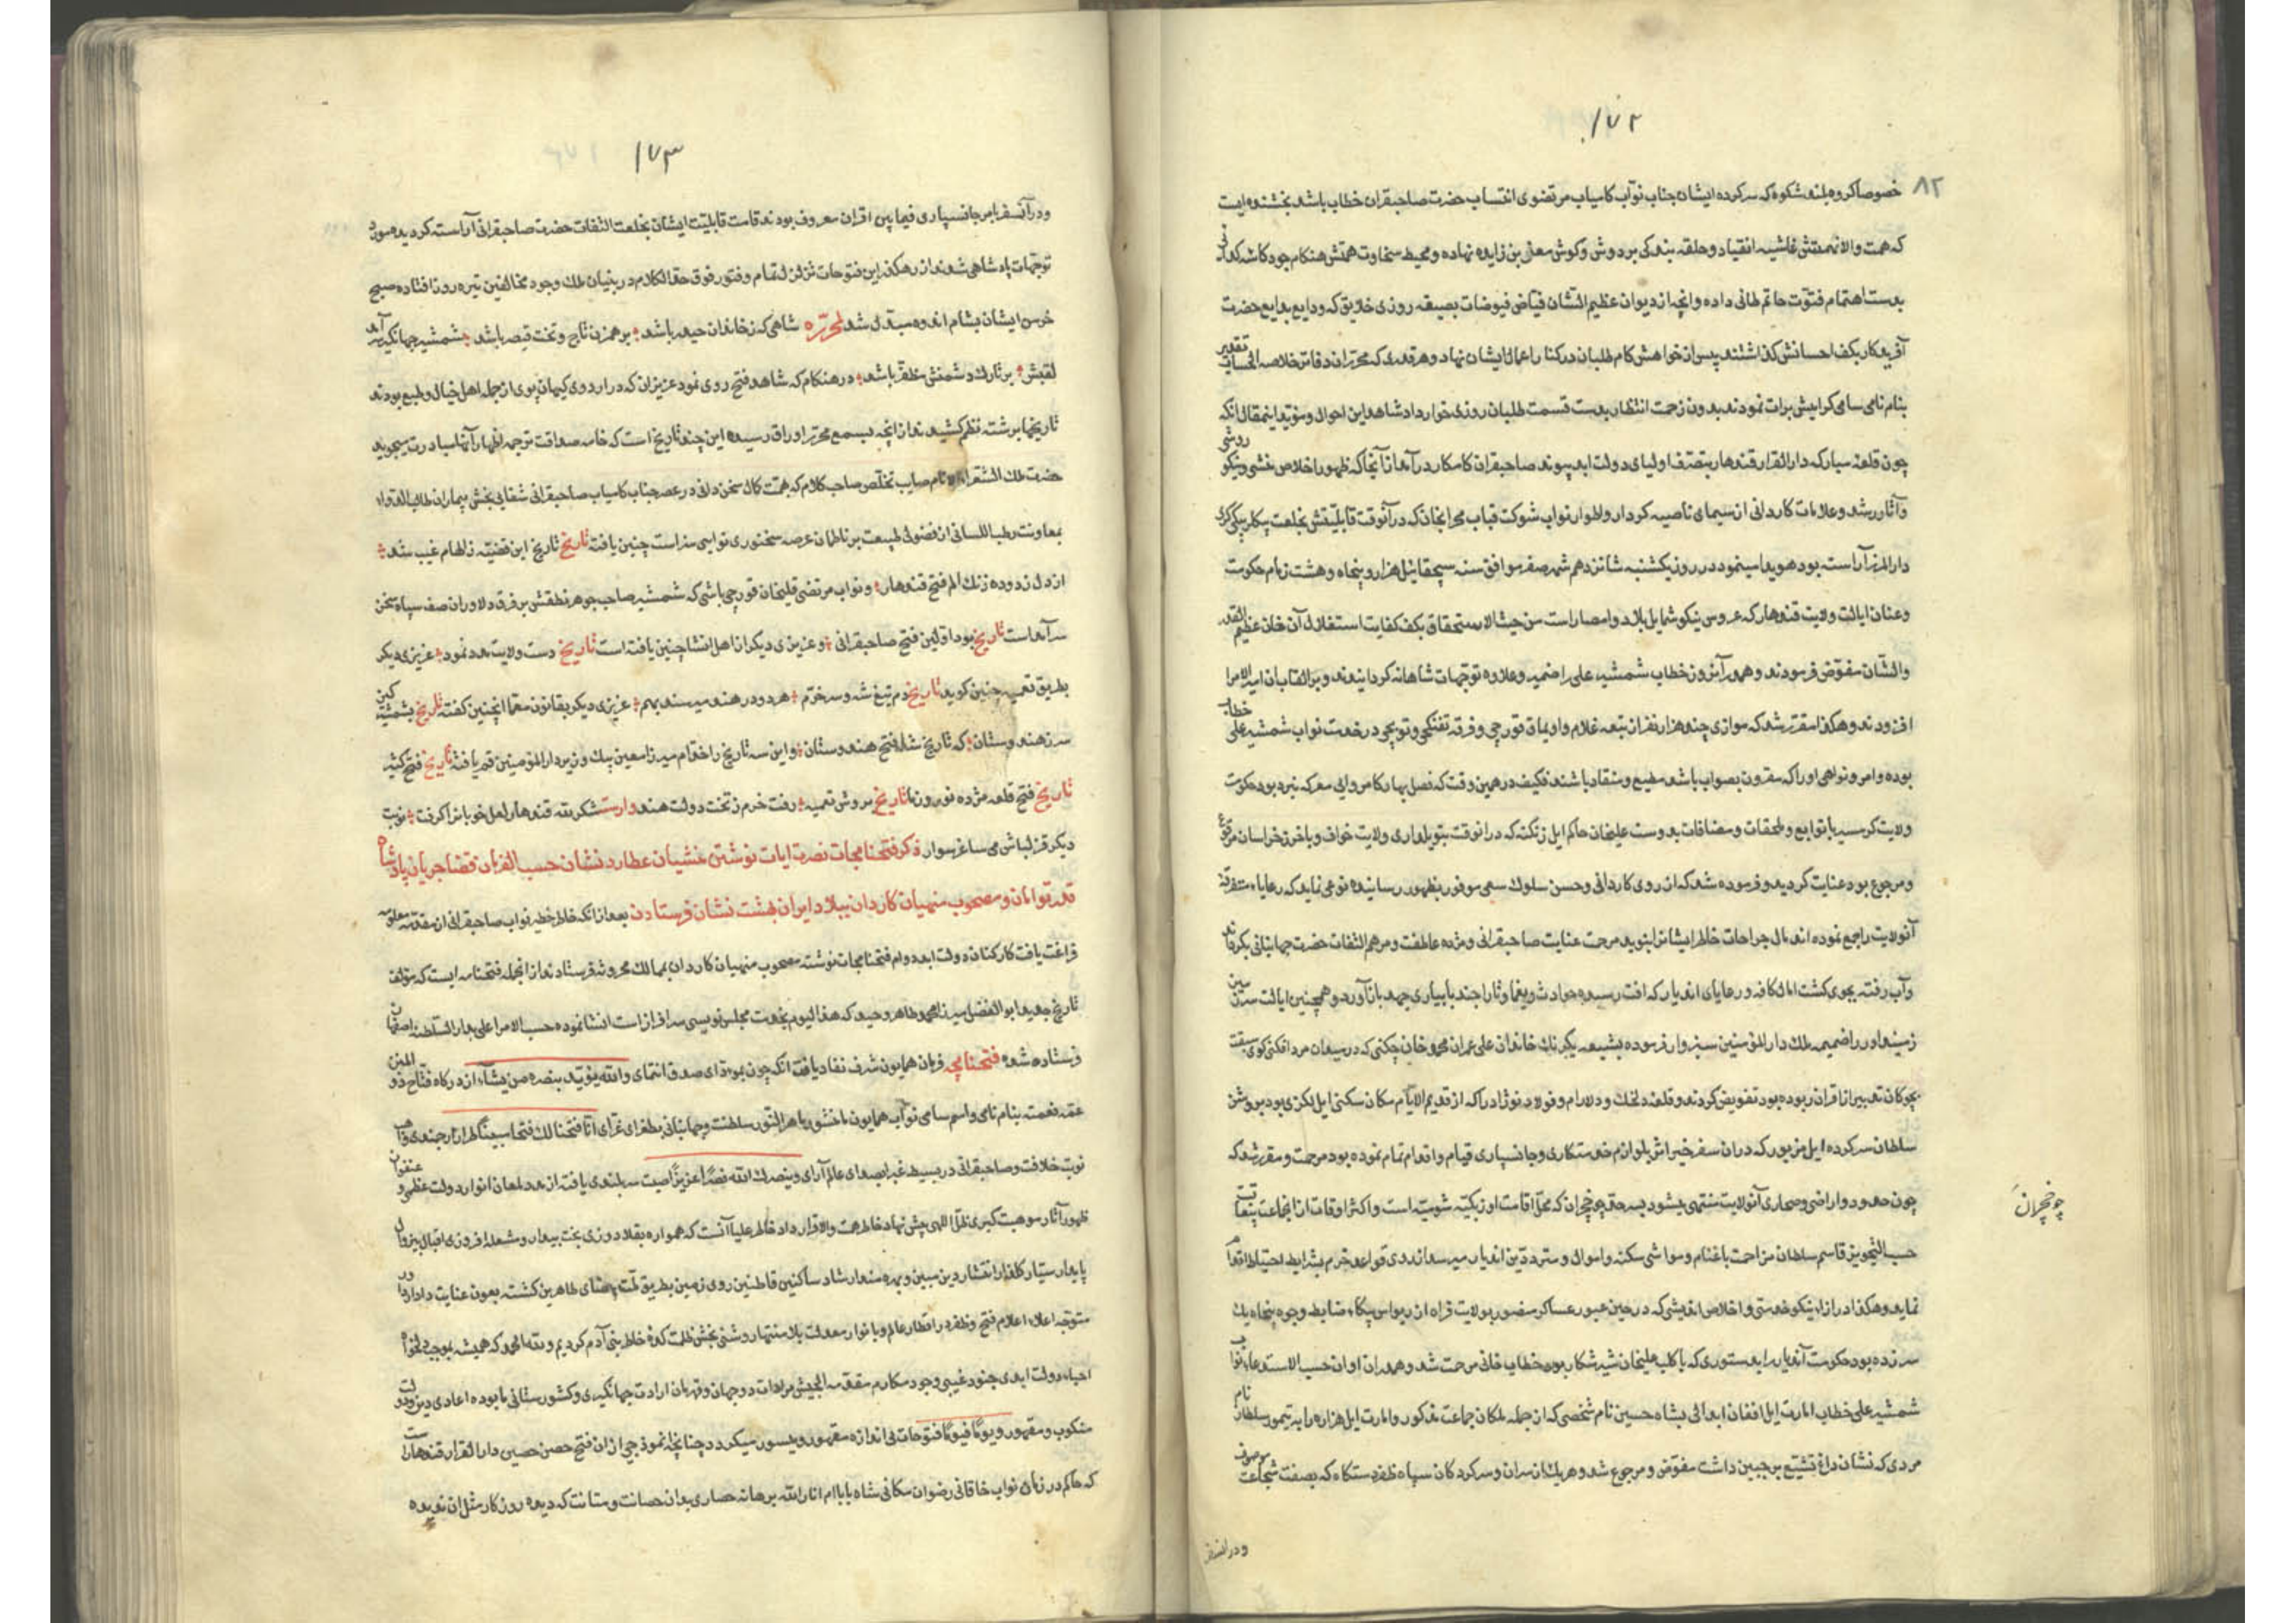 ۱۷۲
۸۲
خصوصا کروه بلند شکوه که سرکرده ایشان جناب نواب کامیاب مرتضوی انتساب حضرت صاحبقران خطاب باشد بخشنده ایست
که همت والا نهمتش غاشیه انقیاد و حلقه بندکی بر دوش و کوش معن بن زایده نهاده و محیط سخاوت همتش هنکام جود کاسه کدائی
بدست اهتمام فتوت حاتم طائی داده وانچه از دیوان عظیم الشان فیاض فیوضات بصیغه روزی خلایق که ودایع بدایع حضرت
آفریدکار بکف احسانش کذاشتند پس از خواهش کام طلبان در کنار اعمال ایشان نهاد و هر قدری که محرران دفاتر خلاصه الحساب تقدیر
بنام نامی سامی کرامیش برات نمودند بدون زحمت انتظار بدست قسمت طلبان روزی خوار داد شاهد این احوال و مؤید اینمقال انکه
چون قلعه مبارکه دار القرار قندهار بتصرف اولیای دولت ابد پیوند صاحبقران کامکار درآمد از آنجا که ظهور اخلاص منشی و نیکو روشی
وآثار رشد و علامات کاردانی از سیمای ناصیه کردار و اطوار نواب شوکت قباب محرابخان که در آنوقت قابلیتش بخلعت بیکلربیکی کری
دار المرز آراسته بود هویدا مینمود در روز یکشنبه شانزدهم شهر صفر موافق سنه سیچقان ئیل هزار و پنجاه و هشت زمام حکومت
وعنان ایالت ولایت قندهار که عروس نیکو شمایل بلاد و امصار است من حیث الاستحقاق بکف کفایت استقلال آن خان عظیم القدر
والشان مفوض فرمودند و همدر آنروز خطاب شمشیر علی را ضمیمه و علاوه توجهات شاهانه کردانیدند و بر القاب آن امیر الامرا
افزودند و هکذا مقرر شد که موازی چند هزار نفر از تبعه غلام و اویماق قورچی و فرقه تفنکچی و توپچی در خدمت نواب شمشیر علی خطاب
بوده وامر و نواهی او را که مقرون بصواب باشد مطیع و منقاد باشند فکیف در همین وقت که فصل بهار کامروائی معرکه نبرد بود حکومت
ولایت کرمسیر با توابع و ملحقات و مضافات بدوست علیخان حاکم ایل زنکنه که درانوقت بتویلداری ولایت خواف و باخرز خراسان مرفوع
ومرجوع بود عنایت کردید و فرموده شد که از روی کاردانی و حسن سلوک سعی موفور بظهور رسانیده نوعی نماید که رعایاء متفرقه
آنولایت راجع نموده اندمال جراحات خاطر ایشانرا بنوید مرحمت عنایت صاحبقرانی و مژده عاطفت و مرهم التفات حضرت جهانبانی بکرفاند
وآب رفته بجوی کشت امال کافه و رعایای اندیار که افت رسیده حوادث و یغما و تاراجند بابیاری جهد بازآورد و همچنین ایالت سرزمین
زمینداور را ضمیمه ملک دار المؤمنین سبزوار فرموده بشیعه یکرنک خاندان علی عمران محمد خان چکنی که در میدان مرد افکنی کوی سبقت
بچوکان تدبیر از اقران ربوده بود تفویض کردند و قلعه دلخک و دلارام و فولاد نوژاد را که از قدیم الایام مکان سکنی ایل لکزی بود بروشن
سلطان سرکرده ایل مزبور که دران سفر خیر اثر بلوازم خدمتکاری و جانسپاری قیام و اقدام تمام نموده بود مرحمت و مقرر شد که
چون حدود و اراضی و صحاری آنولایت منتهی میشود بسرحد چخچران که محل اقامت اوزبکیه شومیه است و اکثر اوقات ازان جماعت
حسب التجویز قاسم سلطان مزاحمت باغنام و مواشی سکنه و اموال و مترددین اندیار میرسد از روی قواعد حزم بشرایط احتیاط اقدام
نماید و هکذا در ازاء نیکو خدمتی و اخلاص اندیشی که در حین عبور عساکر منصور بولایت فراه از ریواس بیکاء ضابط وجوه پنجاه یک
سر زده بود حکومت آندیار را بدستوری که با کلب علیخان شیر شکار بوده خطاب خانی مرحمت شد و همدران اوان حسب الاستدعاء نواب
شمشیر علی خطاب امارت ایل افغان ابدالی بشاه حسین نام شخصی که از جمله ملکان جماعت مذکور و امارت ایل هزاره را به تیمور سلطان نام
مردی که نشان داغ تشیع بر جبین داشت مفوض و مرجوع شد و هریک از سران و سرکردکان سپاه ظفر دستکاه که بصفت شجاعت موصوف
چوخچران
ودرانسفر
۱۷۳
ودرآنسفر بامر جانسپاری فیما بین اقران معروف بودند قامت قابلیت ایشان بخلعت التفات حضرت صاحبقرانی آراسته کردیده مورد
توجهات پادشاهی شدند از رهکذر این فتوحات تزلزل تمام و فتور فوق حد الکلام در بنیان ملک وجود مخالفین تیره روز افتاده صبح
خرمن ایشان بشام اندوه مبدل شد لمحرره شاهی که ز خاندان حیدر باشد بر همزن تاج و تخت قیصر باشد شمشیر جهانکیر آمد
لقبش بر تارک دشمنش مظفر باشد در هنکام که شاهد فتح روی نمود عزیزان که در اردوی کیهان پوی از جمله اهل خیال و طبع بودند
تاریخها برشته نظم کشیدند از انچه بسمع محرر اوراق رسیده این چند تاریخ است که خامه صداقت ترجمه اظهار آنها مبادرت میجوید
حضرت ملک الشعراء الانام صایب تخلص صاحب کلام که همت کمال سخن دانی در عصر جناب کامیاب صاحبقرانی شفائی بخش بیماران طالب القداء
بمعاونت رطب اللسانی از فضولی طبیعت بر ناظمان عرصه سخنوری نوایی سنرا است چنین یافته تاریخ تاریخ این قضیه ز الهام غیب شد
از دل زدوده زنک الم فتح قندهار و نواب مرتضی قلیخان قورچی باشی که شمشیر صاحب جوهر نطقش بر فرق دلاوران صف سپاه سخن
سرآمد است تاریخ بود اولین فتح صاحبقرانی و عزیزی دیکر از اهل انشا چنین یافته است تاریخ دست ولایت مدد نمود عزیزی دیکر
بطریق تعمیه چنین کوید تاریخ دم تیغ شه و سر خرم هر دو در هند میرسند بهم عزیزی دیکر بقانون معما اینچنین کفته تاریخ بشمشیر کین
سر ز هندوستان که تاریخ شد فتح هندوستان و این سه تاریخ را خدام میرزا معین بیک وزیر دار المؤمنین قم یافته تاریخ فتح کشید
تاریخ فتح قلعه مژده نوروز ما تاریخ بروش تعمیه رفت خرم ز تخت دولت هند وارست شکر که قندهار لعل خوبانرا کرفت نوبت
دیکر قزلباش می ساغر سوار ذکر فتحنامجات نصرت ایات نوشتن منشیان عطارد نشان حسب الفرمان قضا جریان پادشاه
قدر توامان و مصحوب منهیان کاردان ببلاد ایران بهشت نشان فرستادن بعد از انکه خاطر خطیر نواب صاحبقرانی از مقدمه معلومه
فراغت یافت کارکنان دولت ابد دوام فتحنامجات نوشته مصحوب منهیان کاردان بممالک محروسه فرستادند از انجمله فتحنامه ایست که مؤلف
تاریخ جدید ابو الفضل میرزا محمد طاهر وحید که هذا الیوم بخدمت مجلس نویسی سرافراز است انشا نموده حسب الامر اعلی بدار السلطنه اصفهان
فرستاده شده فتحنامچه فرمان همایون شرف نفاد یافت انکه چون بموءدای صدق انتمای والله یؤید بنصره من یشاء از درکاه فتاح ذو المنن
عقد نعمته بنام نامی و اسم سامی نواب همایون ما منشور باهر النور سلطنت و جهانبانی بطغرای غرای انا فتحنا لک فتحا مبینا طراز ارجمندی یافت
نوبت خلافت و صاحبقرانی در بسیط غبرا بصدای عالم آرای وینصرک الله نصرا عزیزا صیت سربلندی یافته از بدو لمعان انوار دولت عظمی و عنفوان
ظهور آثار موهبت کبری ظل اللهی پیش نهاد خاطر همت والا و قرار داد خاطر علیا آنست که همواره بقلادوزی بخت بیدار و مشعله افروزی اقبال بیزوال
پایدار ستیار کلفذار انتشار دین مبین و بهره مند ارشاد ساکنین قاطنین روی زمین بطریق ملت بیضای طاهرین کشته بعون عنایت داداردا ور
متوجه اعلاء اعلام فتح و ظفر در اقطار عالم و بانوار معدلت بلا منتها روشنی بخش ظلمت کده خاطر بنی آدم کردیم ولله الحمد که همیشه بموجب دلخواه
احباء دولت ابدی جنود غیبی وجود مکارم مقدمه الجیش مرادات دوجهان و قهرمان ارادت جهانکیری و کشورستانی ما بوده اعادی دین و دولت
منکوب و مقهور و یوما فیوما فتوحات بی اندازه مقهور و میسور میکردد چنانچه انموذجی از ان فتح حصن حصین دار القرار قندهار است
که حاکم در زمان نواب خاقانی رضوان مکانی شاه بابا ام انار الله برهانه حصاری بدان حصانت و متانت که دیده روزکار مثل ان ندیده